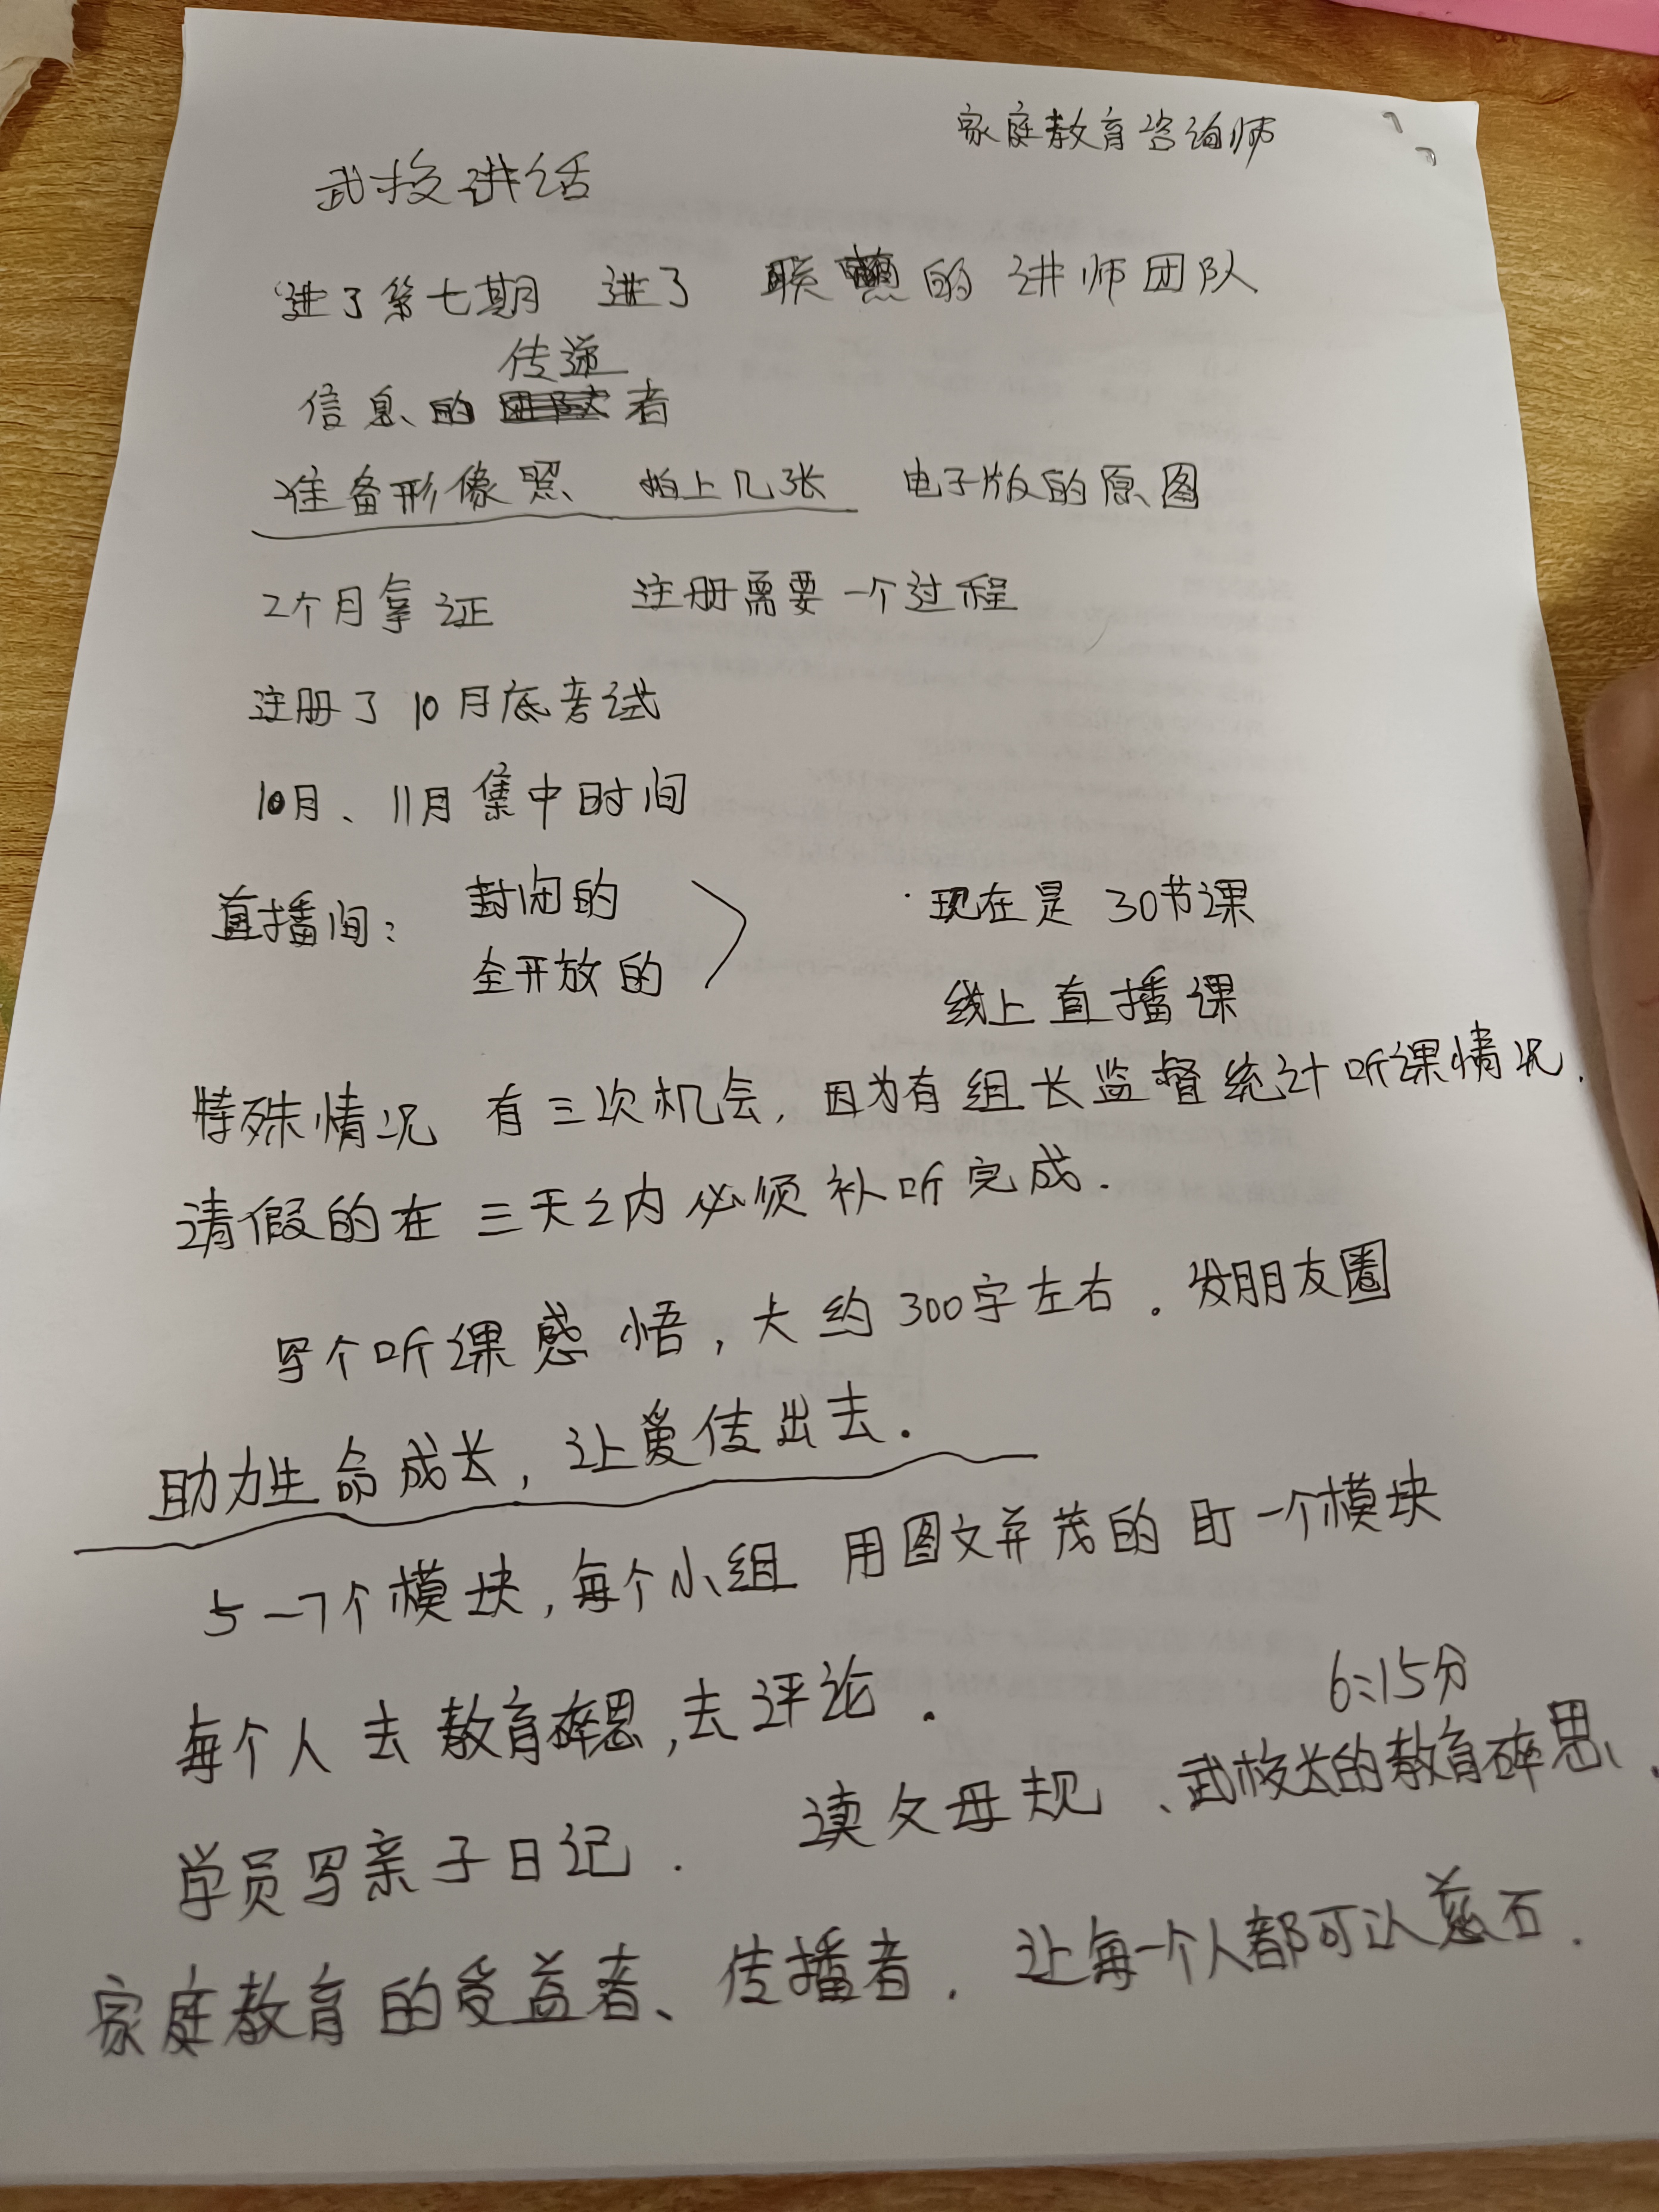 家庭教育咨询师
武校讲话
进了第七期 进了 联 的 讲师团队
传递
信息的者
准备形像照 拍上几张 电子版的原图
2个月拿证 注册需要一个过程
注册了10月底考试
10月、11月集中时间
直播间: 封闭的
全开放的
·现在是 30节课
线上直播课
特殊情况 有三次机会, 因为有组长监督统计听课情况.
请假的在 三天之内必须补听完成.
写个听课感悟, 大约300字左右. 发朋友圈
助力生命成长, 让爱传出去.
5-7个模块, 每个小组 用图文并茂的 一个模块
每个人去教育碎思, 去评论.
6:15分
学员写亲子日记. 读父母规、武校长的教育碎思、
家庭教育的受益者、传播者. 让每一个人都可以